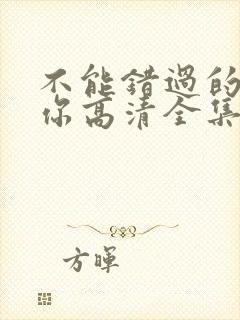 不能错过的
你高清全集
方晖